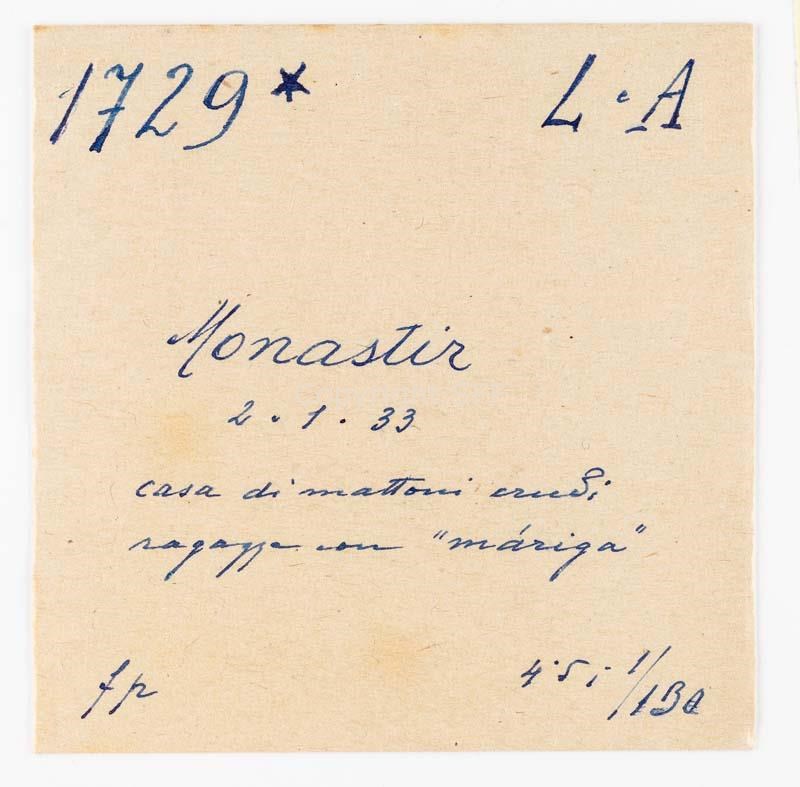 1729* L.A
Monastir
2.1.33
casa di mattoni crudi
ragazze con "máriga"
fp 4·5; 1/130